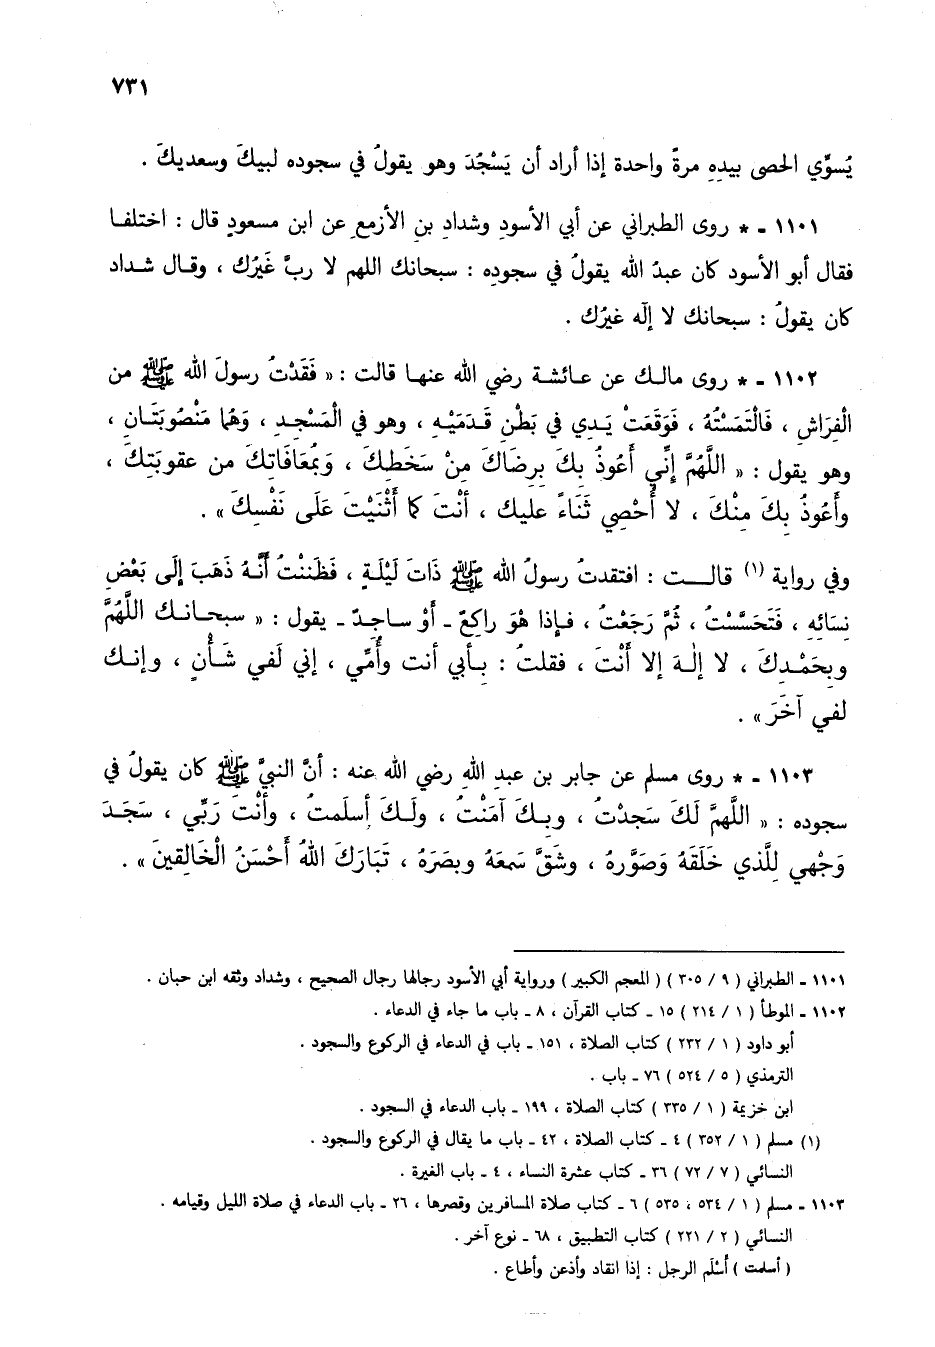 ٧٣١
يُسوِّي الحصى بيدِهِ مرةً واحدة إذا أراد أن يَسْجُدَ وهو يقولُ في سجوده لبيكَ وسعديكَ .
١١٠١ - * روى الطبراني عن أبي الأسودِ وشدادِ بنِ الأزمعِ عن ابن مسعودٍ قال : اختلفا
فقال أبو الأسود كان عبدُ الله يقولُ في سجودِه : سبحانك اللهم لا ربَّ غَيرُك ، وقـال شـداد
كان يقولُ : سبحانك لا إلٰه غيرُك .
١١٠٢ - * روى مالـك عن عـائشـة رضي الله عنهـا قالت : « فَقَدْتُ رسولَ الله ﷺ من
الْفِرَاشِ ، فَالْتَمَسْتُهُ ، فَوَقَعَتْ يَـدِي في بَطْنِ قَـدَمَيْـهِ ، وهو في الْمَسْجـدِ ، وَهُمَا مَنْصُوبَتَـانِ ،
وهو يقول : « اللَّهُمَّ إِنِّي أَعُوذُ بِكَ بِرِضَاكَ مِنْ سَخَطِكَ ، وَبِمُعَافَاتِكَ من عقوبَتِكَ ،
وأَعُوذُ بِكَ مِنْكَ ، لا أُحْصِي ثَنَاءً عليك ، أنْتَ كَمَا أَثْنَيْتَ عَلَى نَفْسِكَ » .
وفي رواية (١) قالـــت : افتقدتُ رسولُ الله ﷺ ذَاتَ لَيْلَةٍ ، فَظَنَنْتُ أَنَّـهُ ذَهَبَ إِلَى بَعْضِ
نِسَائِهِ ، فَتَحَسَّسْتُ ، ثُمَّ رَجَعْتُ ، فـإذا هُوَ راكِعٌ - أَوْ سـاجِـدٌ - يقول : « سبحـانـك اللَّهُمَّ
وبِحَمْـدِكَ ، لا إلٰـهَ إلا أَنْتَ ، فقلتُ : بـأبي أنت وأُمِّي ، إني لَفي شَـأْنٍ ، وإنـك
لفي آخَرَ » .
١١٠٣ - * روى مسلم عن جابر بن عبدِ اللهِ رضي الله عنه : أنَّ النبيَّ ﷺ كان يقولُ في
سجوده : « اللَّهمَّ لَكَ سَجدْتُ ، وبِـكَ آمَنْتُ ، ولَـكَ أسلَمتُ ، وأَنْتَ رَبِّي ، سَجَـدَ
وَجْهي لِلَّذي خَلَقَهُ وَصَوَّره ، وشَقَّ سَمعَهُ وبصَرَهُ ، تَبَارَكَ اللهُ أَحْسَنُ الْخَالِقينَ » .
١١٠١ - الطبراني ( ٩ / ٣٠٥ ) ( المعجم الكبير ) ورواية أبي الأسود رجالها رجال الصحيح ، وشداد وثقه ابن حبان .
١١٠٢ - الموطأ ( ١ / ٢١٤ ) ١٥ - كتاب القرآن ، ٨ - باب ما جاء في الدعاء .
أبو داود ( ١ / ٢٣٢ ) كتاب الصلاة ، ١٥١ - باب في الدعاء في الركوع والسجود .
الترمذي ( ٥ / ٥٢٤ ) ٧٦ - باب .
ابن خزيمة ( ١ / ٣٣٥ ) كتاب الصلاة ، ١٩٩ - باب الدعاء في السجود .
(١) مسلم ( ١ / ٣٥٢ ) ٤ - كتاب الصلاة ، ٤٢ - باب ما يقال في الركوع والسجود .
النسائي ( ٧ / ٧٢ ) ٣٦ - كتاب عشرة النساء ، ٤ - باب الغيرة .
١١٠٣ - مسلم ( ١ / ٥٣٤ ، ٥٣٥ ) ٦ - كتاب صلاة المسافرين وقصرها ، ٢٦ - باب الدعاء في صلاة الليل وقيامه .
النسائي ( ٢ / ٢٢١ ) كتاب التطبيق ، ٦٨ - نوع آخر .
( أسلمت ) أَسْلَم الرجل : إذا انقاد وأذعن وأطاع .